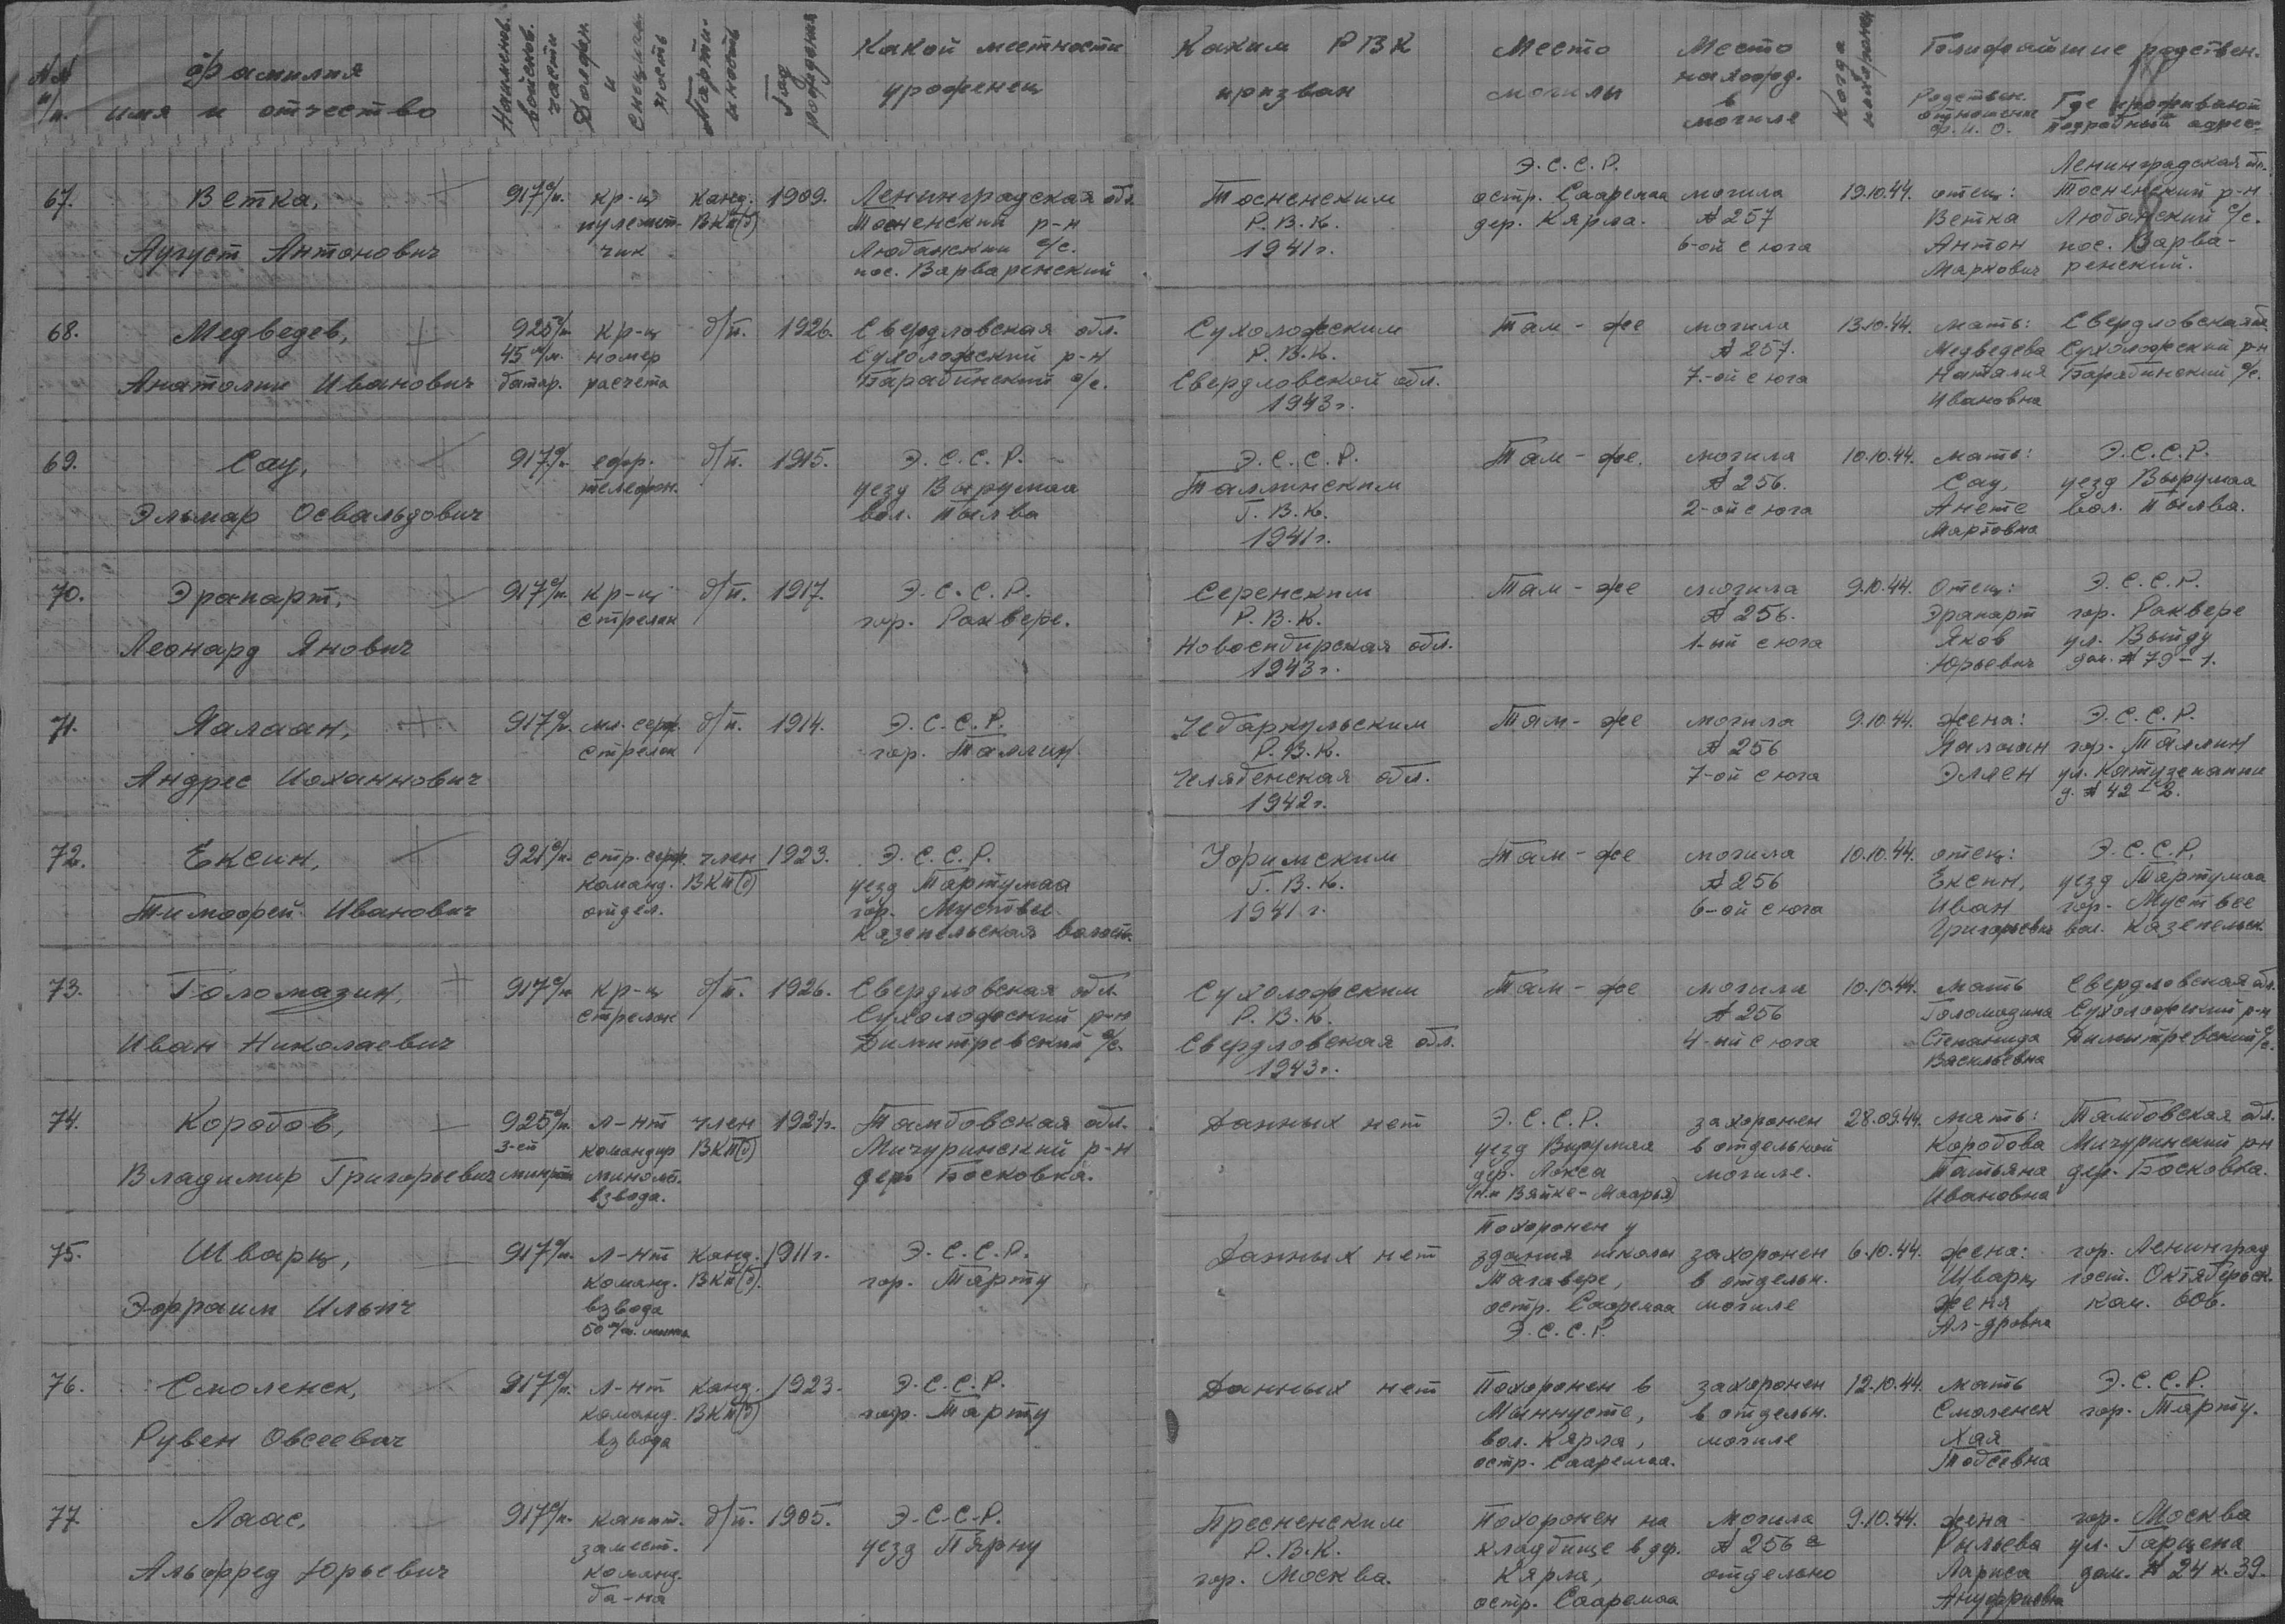 №№ п/п.
Фамилия имя и отчество
Наименов. войсков. части
Должн. и специальность
Партийность
Год рождения
Какой местности уроженец
Каким РВК призван
Место могилы
Место нахожд. в могиле
Когда похоронен
Ближайшие родствен.
Родствен. отношение ф. и. о.
Где проживают подробный адрес
67. Ветка, 917 с/п. кр-ц канд. 1909. Ленинградская обл. Тосненским Э.С.С.Р. остр. Сааремаа могила 19.10.44. отец: Ленинградская обл. Тосненский р-н
пулемет- ВКП(б) Тосненский р-н Р.В.К. дер. Кярла. № 257 Ветка Любанский с/с.
Август Антонович чик Любанский с/с. 1941 г. 6-ой с юга Антон пос. Варва-
пос. Варваренский Маркович ренский.
68. Медведев, 925 с/п. кр-ц б/п. 1926. Свердловская обл. Сухоложским Там-же могила 13.10.44. мать: Свердловская обл.
45 м/м. номер Сухоложский р-н Р.В.К. № 257. Медведева Сухоложский р-н
Анатолии Иванович батар. расчета Барабинский с/с. Свердловской обл. 7-ой с юга Наталия Барабинский с/с.
1943 г. Ивановна
69. Сау, 917 с/п. ефр. б/п. 1915. Э.С.С.Р. Э.С.С.Р. Там-же. могила 10.10.44. мать: Э.С.С.Р.
телефон. уезд Вырумаа Таллинским № 256. Сау, уезд Вырумаа
Эльмар Освальдович вол. Пылва Г.В.К. 2-ой с юга Анете вол. Пылва.
1941 г. Мартовна
70. Эрапарт, 917 с/п. кр-ц б/п. 1917. Э.С.С.Р. Серенским Там-же могила 9.10.44. Отец: Э.С.С.Р.
стрелок гор. Раквере. Р.В.К. № 256. Эрапарт гор. Раквере
Леонард Янович Новосибирская обл. 1-ый с юга Яков ул. Выйду
1943 г. Юрьевич дом. № 79-1.
71. Яалаан, 917 с/п. мл. серж. б/п. 1914. Э.С.С.Р. Чебаркульским Там-же могила 9.10.44. жена: Э.С.С.Р.
стрелок гор. Таллин. Р.В.К. № 256 Яалаан гор. Таллин
Андрес Иоханнович Челябенская обл. 7-ой с юга Эллен ул.
1942 г. д. № 42-2.
72. Ексин, 921 с/п. стр. серж. член 1923. Э.С.С.Р. Там-же могила 10.10.44. отец: Э.С.С.Р.
команд. ВКП(б) уезд Тартумаа Г.В.К. № 256 Ексин, уезд Тартумаа
Тимофей Иванович отдел. гор. Муствее 1941 г. 6-ой с юга Иван гор. Муствее
Казепельская волость. Григорьевич вол. Казепельск.
73.Голомазин, 917 с/п. кр-ц б/п. 1926. Свердловская обл. Сухоложским Там-же могила 10.10.44. мать Свердловская обл.
стрелок Сухоложский р-н Р.В.К. № 256 Голомазина Сухоложский р-н
Иван Николаевич Димитревский с/с. Свердловская обл. 4-ый с юга Степанида Димитревский с/с.
1943 г. Васильевна
74. Коробов, 925 с/п. л-нт член 1921 г. Тамбовская обл. Данных нет Э.С.С.Р. захоронен 28.09.44. мать: Тамбовская обл.
3-ей командир ВКП(б) Мичуринский р-н уезд Вирумаа в отдельной Коробова Мичуринский р-н
Владимир Григорьевич минрот миномт. дер. Босковка. дер. Локса могиле. Татьяна дер. Босковка.
взвода. (н.п Вяйке-Маарья) Ивановна
75. Шварц, 917 с/п. л-нт канд. 1911 г. Э.С.С.Р. Данных нет Похоронен у здания школы захоронен 6.10.44. жена: гор. Ленинград
команд. ВКП(б). гор. Тарту Тагавере, в отдельн. Шварц гост. Октябрьск.
Эфраим Ильич взвода остр. Сааремаа могиле Женя ком. 606.
50 м/м. мином Э.С.С.Р. Ал-дровна
76. Смоленск, 917 с/п. л-нт канд. 1923. Э.С.С.Р. Данных нет Похоронен в захоронен 12.10.44. мать Э.С.С.Р.
команд. ВКП(б) гор. Тарту Мыннусте, в отдельн. Смоленск гор. Тарту.
Рувен Овсеевич взвода вол. Кярла, могиле Хая
остр. Сааремаа. Тобсевна
77. Лаас, 917 с/п. капит. б/п. 1905. Э.С.С.Р. Пресненским Похоронен на могила 9.10.44. жена гор. Москва
замест. уезд Пярну Р.В.К. кладбище в д. № 256 а Рыльева ул. Герцена
Альфред Юрьевич команд. гор. Москва. Кярла, отдельно Лариса дом. № 24 к. 39.
ба-на остр. Сааремаа Ануфриевна